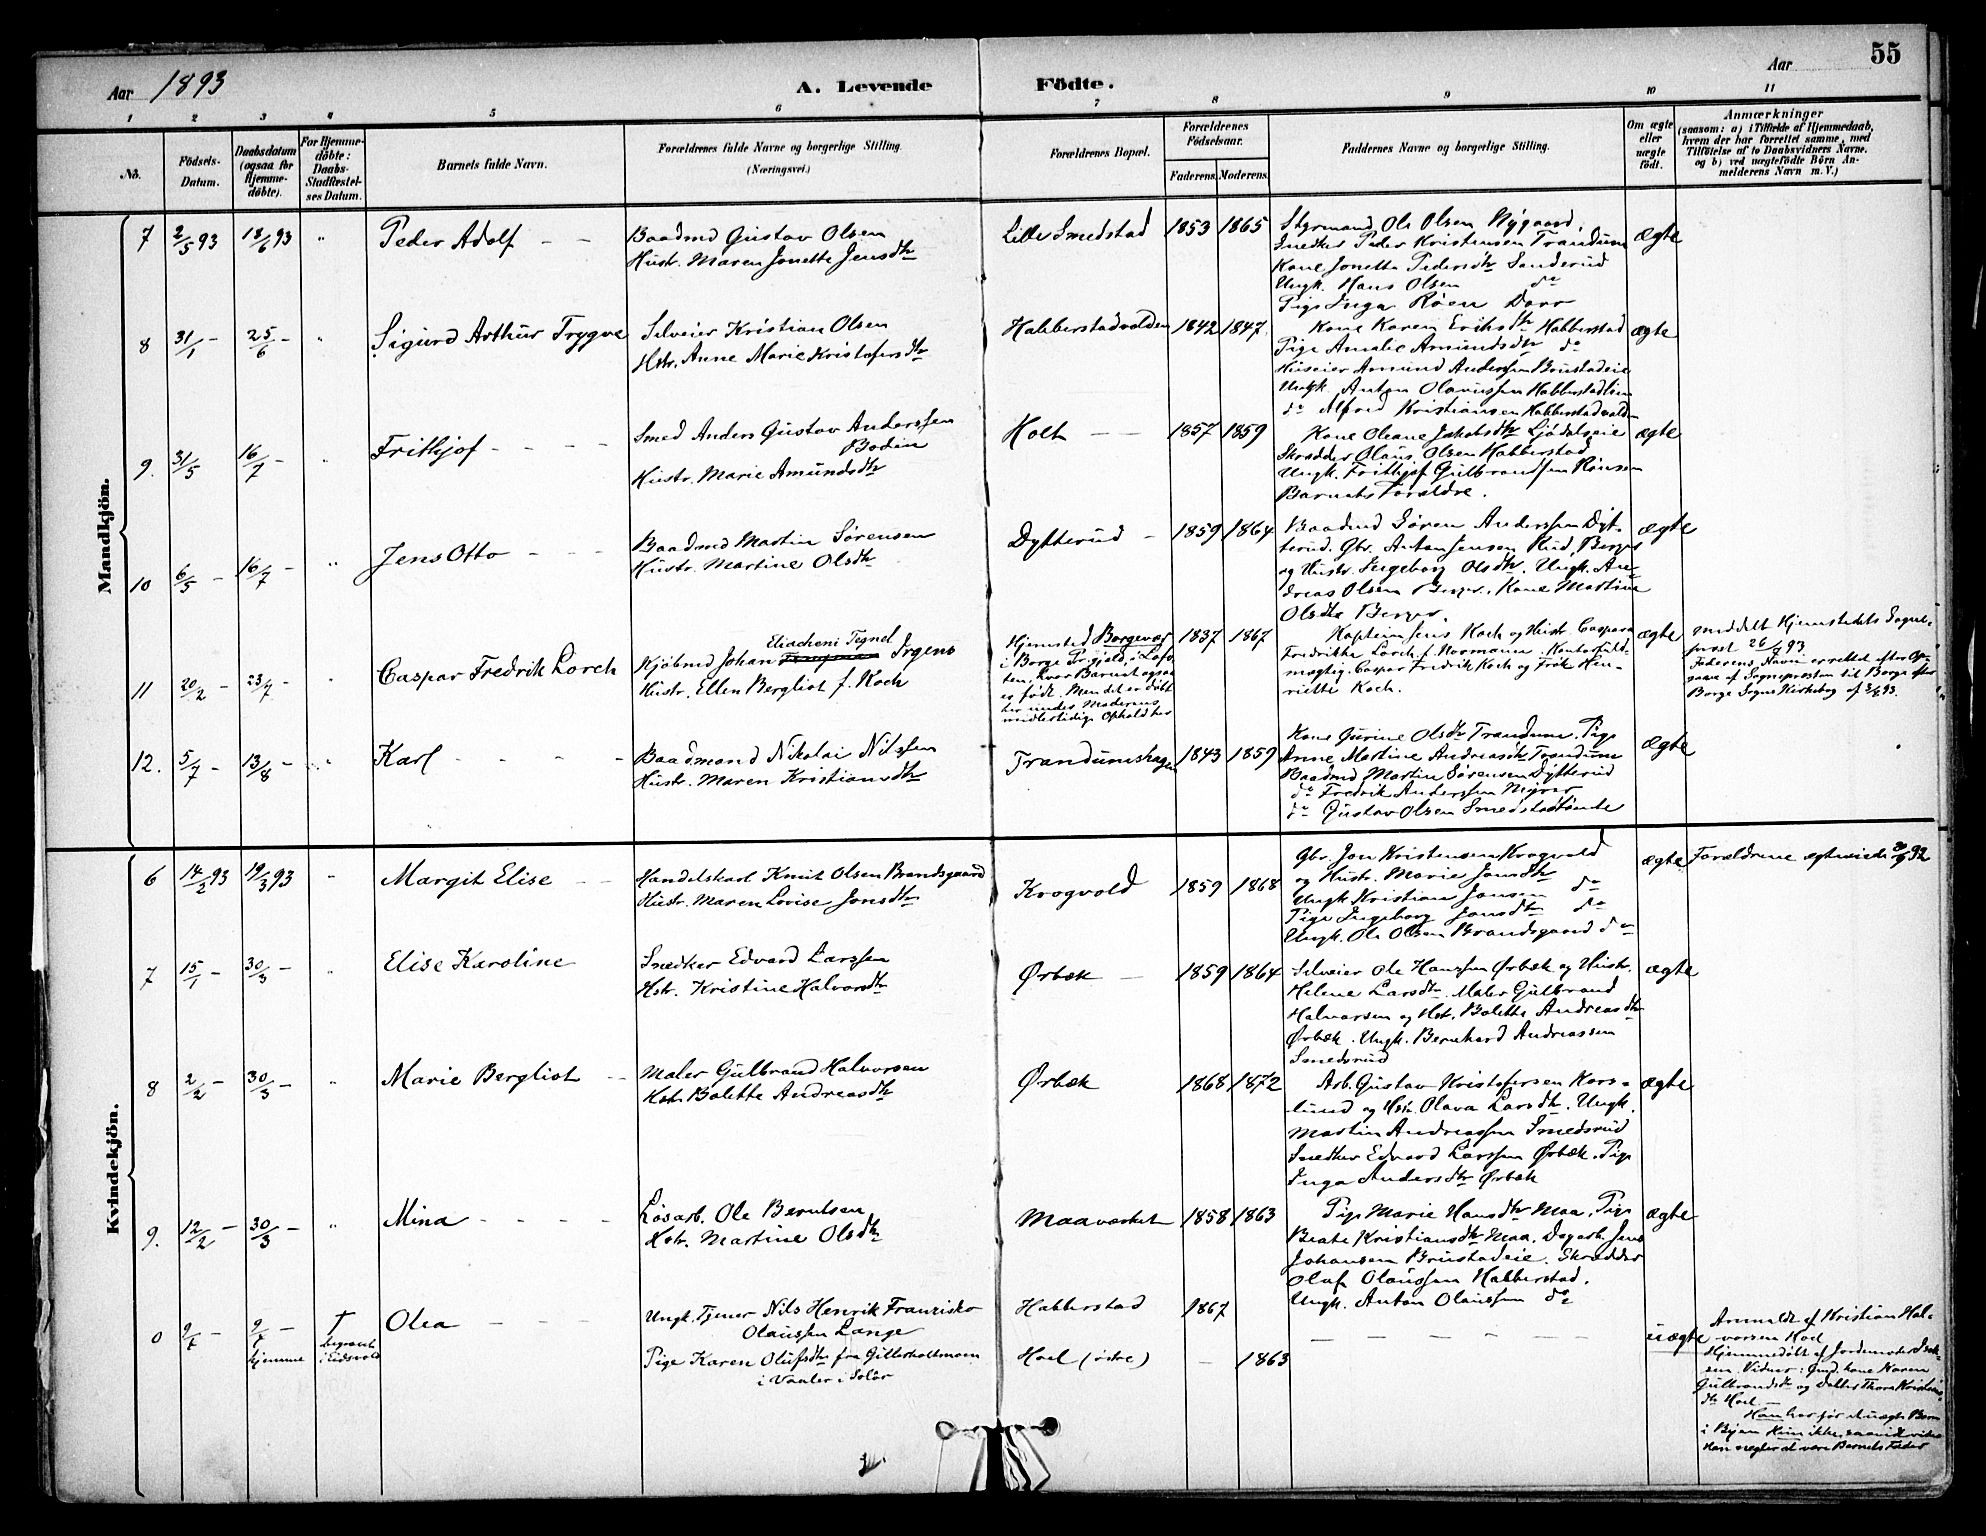 55
Aar 1893
A. Levende Födte.
Aar
1 2 3 4 5 6 7 8 9 10 11
No.
Födsels-Datum.
Daabsdatum (ogsaa for Hjemme-döbte).
For Hjemme-döbte: Daabs-Stadfæstel-ses Datum.
Barnets fulde Navn.
Forældrenes fulde Navne og borgerlige Stilling.
(Næringsvei.)
Forældrenes Bopæl.
Forældrenes Födselsaar.
Faderens. Moderens.
Faddernes Navne og borgerlige Stilling.
Om ægte eller uægte födt.
Anmærkninger
(saasom: a) i Tilfælde af Hjemmedaab, hvem der har forrettet samme, med Tilföielse af to Daabsvidners Navne, og b) ved uægtefödte Börn An-melderens Navn m. V.)
Mandkjön.
7 2/5 93 18/6 93 " Peder Adolf
Baadmd Gustav Olsen
Hustr. Maren Jonette Jensdtr
Lille Smedstad 1853 1865
Styrmand Ole Olsen Nygaard,
Snedker Peder Kristensen Trandum
Kone Jonette Pedersdtr Sanderud
Ungk. Hans Olsen do
Pige Inga Røen Dorr
ægte
8 31/1 - 25/6 - " Sigurd Arthur Trygve
Selveier Kristian Olsen
Hstr. Anne Marie Kristofersdtr
Habberstadvolden 1842 1847
Kone Karen Eriksdtr Habberstad
Pige Amalie Amundsdtr do
Huseier Amund Anderssen Brustadeie
Ungk. Anton Olaussen Habberstadlien
do Alfred Kristiansen Habberstadvolden
ægte
9. 31/5 16/7 - " Frithjof
Smed Anders Gustav Anderssen
Bodin
Hustr. Marie Amundsdtr
Holt 1857 1859
Kone Oleane Jakobsdtr Ljødalseie
Skrædder Olaus Olsen Habberstad
Ungk. Frithjof Gulbrandsen Rønsen
Barnets Forældre.
ægte
10 6/5 - 16/7 - " Jens Otto
Baadmd Martin Sørensen
Hustr. Martine Olsdtr
Dytterud 1859 1864
Baadmd Søren Anderssen Dyt-
terud. Gbr. Anton Jensen Rud, Berger
og Hustr. Ingeborg Olsdtr. Ungk. An-
dreas Olsen Berger. Kone Martine
Olsdtr Berger.
ægte
11 20/2 - 23/7 - " Caspar Fredrik Lorch
Eliacheni Tegnel
Kjøbmd Johan Irgens
Hustr. Ellen Bergliot f. Koch
Hjemsted Borgevær
i Borge Prgjeld, i Lofo-
ten, hvor Barnet ogsaa
er født. Men det er døbt
her under Moderens
midlertidige Ophold her
1837 1867
Kaptein Jens Koch og Hustr Caspara
Fredrikke Lorch f. Normann. Kontorfuld-
mægtig Caspar Fredrik Koch og Frøk. Hen-
riette Koch.
ægte
Meddelt Hjemstedets Sogne-
prest 26/7 93.
Faderens Navn er rettet efter Op-
gave af Sognepresten til Borge efter
Borge Sogns Kirkebog af 3/8 93.
12. 5/7 - 13/8 - Karl
Baadmand Nikolai Nilssen
Hustr. Maren Kristiansdtr
Trandumshagen 1843 1859
Kone Gurine Olsdtr Trandum. Pige
Anne Martine Andreasdtr Trandum
Baadmd Martin Sørensen Dytterud
do Fredrik Anderssen Myrer
do Gustav Olsen Smedstadtomte
ægte
Kvindekjön.
6 14/2 93 19/3 93 " Margit Elise
Handelskarl Knut Olsen Brandsgaard
Hustr. Maren Lovise Jonsdtr
Krogvold 1859 1868
Gbr. Jon Kristensen Krogvold
og Hustr. Marie Jonsdtr
Ungk Kristian Jonsen do
Pige Ingeborg Jonsdtr do
Ungk. Ole Olsen Brandsgaard do
ægte Forældrene ægteviede 92
7 15/1 - 30/3 - " Elise Karoline
Snedker Edvard Larssen
Hstr. Kristine Halvorsdtr
Ørbæk 1859 1864
Selveier Ole Hanssen Ørbæk og Hustr.
Helene Larsdtr. Maler Gulbrand
Halvorsen og Hst. Bolette Andreasdtr
Ørbæk. Ungk. Bernhard Andreassen
Smedsrud
ægte
8 2/2 - 30/3 - " Marie Bergliot
Maler Gulbrand Halvorsen
Hstr. Bolette Andreasdtr
Ørbæk 1868 1872
Arb. Gustav Kristofersen Kors-
lund og Hstr. Olava Larsdtr. Ungk.
Martin Andreassen Smedsrud
Snedker Edvard Larssen Ørbæk. Pige
Inga Andersdtr Ørbæk
ægte
9. 12/2 - 30/3 - " Mina
Løsarb. Ole Berntsen
Hstr. Martine Olsdtr
Maaværket 1858 1863
Pige Marie Hansdtr Maa, Pige
Beate Kristiansdtr Maa. Dagarb. Jens
Johansen Brustadeie. Skrædder
Olaf Olaussen Habberstad.
Ungk. Anton Olaussen do
ægte
0 9/7 - 9/7 - hjemme † begravet i Eidsvold Olea
Ungk. Tjener Nils Henrik Franzisko
Olaussen Lange
Pige Karen Olufsdtr fra Gitterholtmoen
i Vaaler i Solør
Habberstad 1867
Hoel (østre) - 1863
uægte
Anmeldt af Kristian Hal-
vorsen Hoel
Hjemmedøbt af Jordemoder Isak-
sen. Vidner: Gmd. kone Karen
Gulbrandsdtr og Datter Thora Kristians
dtr Hoel -
Han har før et uægte Barn
i Byen Hun ikke, saavidt vides
Han negter at være Barnets Fader